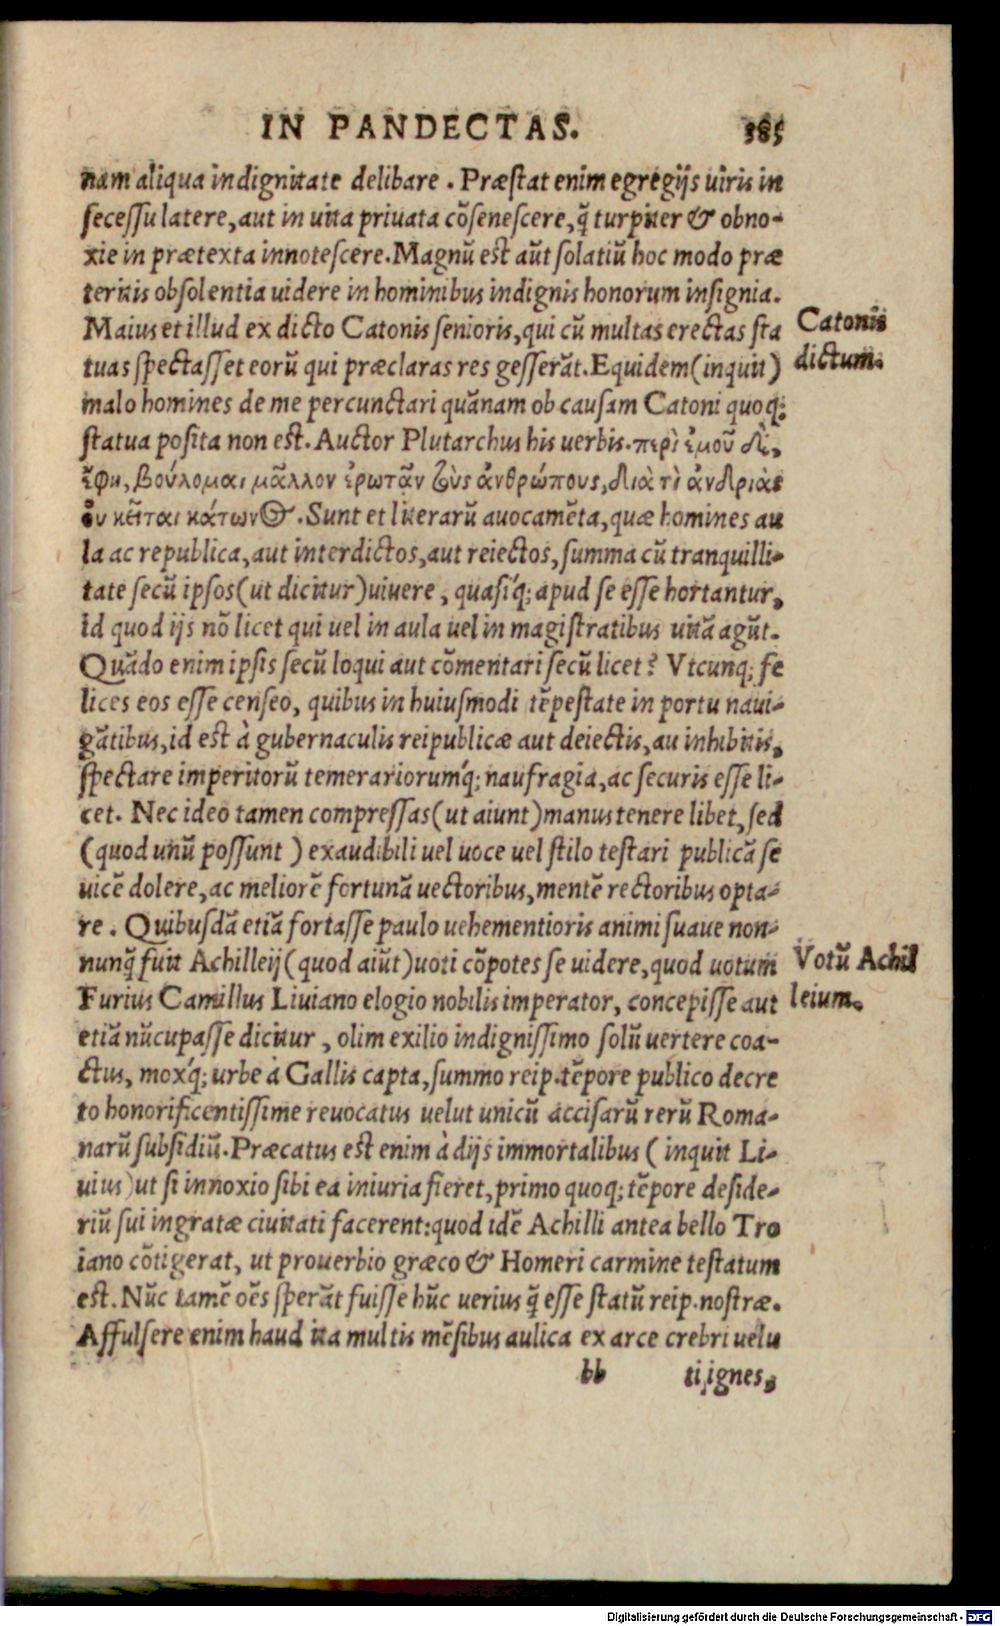 IN PANDECTAS. 385
nam aliqua indignitate delibare. Præstat enim egregijs uiris in
secessu latere, aut in uita priuata cōsenescere, q̃ turpiter & obno-
xie in prætexta innotescere. Magnū est aūt solatiū hoc modo præ
teritis obsolentia uidere in hominibus indignis honorum insignia.
Maius et illud ex dicto Catonis senioris, qui cū multas erectas sta
tuas spectasset eorū qui præclaras res gesserāt. Equidem (inquit)
malo homines de me percunctari quānam ob causam Catoni quoq;
statua posita non est. Auctor Plutarchus his uerbis. περὶ ἐμοῦ δὲ,
ἔφη, βούλομαι μᾶλλον ἐρωτᾶν τοὺς ἀνθρώπους, διὰ τὶ ἀνδριὰς
οὐ κεῖται κάτωνος. Sunt et literarū auocamēta, quæ homines au
la ac republica, aut interdictos, aut reiectos, summa cū tranquilli-
tate secū ipsos (ut dicitur) uiuere, quasíq; apud se esse hortantur,
id quod ijs nō licet qui uel in aula uel in magistratibus uitā agūt.
Quādo enim ipsis secū loqui aut cōmentari secū licet? Vtcunq; fe
lices eos esse censeo, quibus in huiusmodi tēpestate in portu naui-
gātibus, id est à gubernaculis reipublicæ aut deiectis, au inhibitis,
spectare imperitorū temerariorumq́; naufragia, ac securis esse li-
cet. Nec ideo tamen compressas (ut aiunt) manus tenere libet, sed
(quod unū possunt) exaudibili uel uoce uel stilo testari publicā se
uicē dolere, ac meliorē fortunā uectoribus, mentē rectoribus opta-
re. Quibusdā etiā fortasse paulo uehementioris animi suaue non-
nunq̃ fuit Achilleij (quod aiūt) uoti cōpotes se uidere, quod uotum
Furius Camillus Liuiano elogio nobilis imperator, concepisse aut
etiā nūcupasse dicitur, olim exilio indignissimo solū uertere coa-
ctus, moxq́; urbe à Gallis capta, summo reip. tēpore publico decre
to honorificentissime reuocatus uelut unicū accisarū rerū Roma-
narū subsidiū. Præcatus est enim à dijs immortalibus (inquit Li-
uius) ut si innoxio sibi ea iniuria fieret, primo quoq; tēpore deside-
riū sui ingratæ ciuitati facerent: quod idē Achilli antea bello Tro
iano cōtigerat, ut prouerbio græco & Homeri carmine testatum
est. Nūc tamē oēs sperāt fuisse hūc uerius q̃ esse statū reip. nostræ.
Affulsere enim haud ita multis mēsibus aulica ex arce crebri uelu
bb ti ignes,
Catonis
dictum.
Votū Achil
leium.
Digitalisierung gefördert durch die Deutsche Forschungsgemeinschaft - DFG